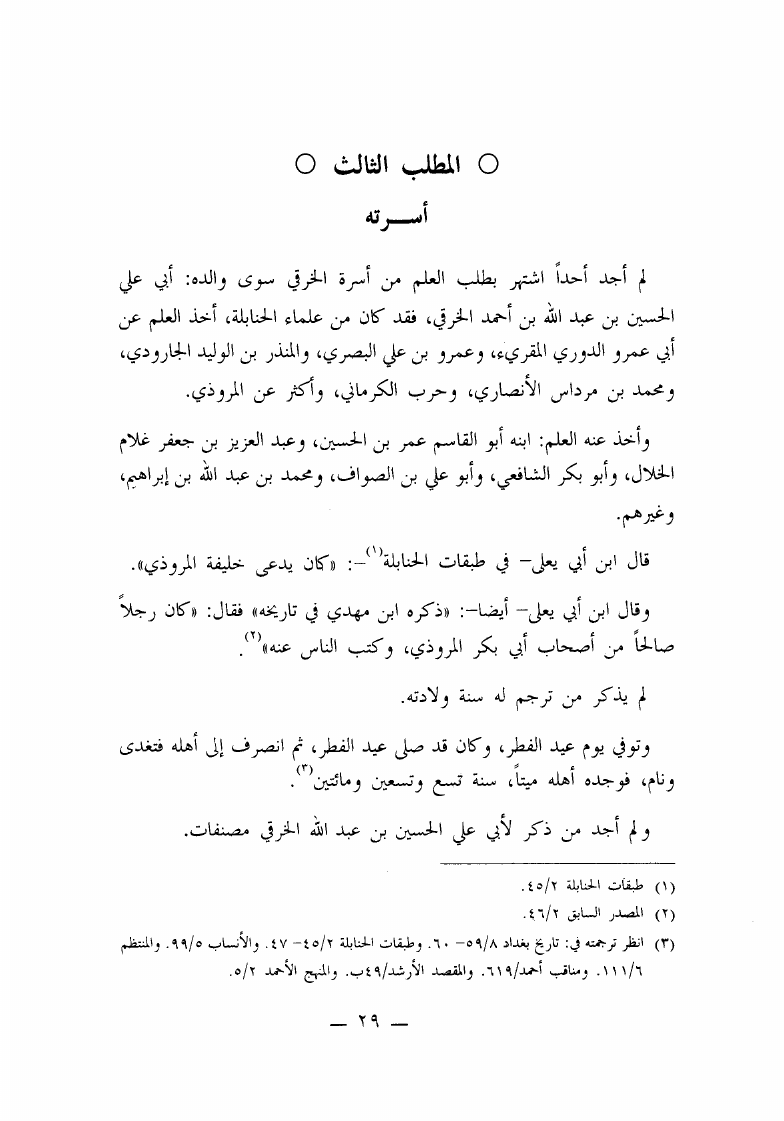 ○ المطلب الثالث ○
أســـرته
لم أجد أحداً اشتهر بطلب العلم من أسرة الخرقي سوى والده: أبي علي
الحسين بن عبد الله بن أحمد الخرقي، فقد كان من علماء الحنابلة، أخذ العلم عن
أبي عمرو الدوري المقريء، وعمرو بن علي البصري، والمنذر بن الوليد الجارودي،
ومحمد بن مرداس الأنصاري، وحرب الكرماني، وأكثر عن المروذي.
وأخذ عنه العلم: ابنه أبو القاسم عمر بن الحسين، وعبد العزيز بن جعفر غلام
الخلال، وأبو بكر الشافعي، وأبو علي بن الصواف، ومحمد بن عبد الله بن إبراهيم،
وغيرهم.
قال ابن أبي يعلى– في طبقات الحنابلة(١)–: «كان يدعى خليفة المروذي».
وقال ابن أبي يعلى– أيضا–: «ذكره ابن مهدي في تاريخه» فقال: «كان رجلاً
صالحاً من أصحاب أبي بكر المروذي، وكتب الناس عنه»(٢).
لم يذكر من ترجم له سنة ولادته.
وتوفي يوم عيد الفطر، وكان قد صلى عيد الفطر، ثم انصرف إلى أهله فتغدى
ونام، فوجده أهله ميتاً، سنة تسع وتسعين ومائتين(٣).
ولم أجد من ذكر لأبي علي الحسين بن عبد الله الخرقي مصنفات.
(١) طبقات الحنابلة ٤٥/٢.
(٢) المصدر السابق ٤٦/٢.
(٣) انظر ترجمته في: تاريخ بغداد ٥٩/٨– ٦٠. وطبقات الحنابلة ٤٥/٢– ٤٧. والأنساب ٩٩/٥. والمنتظم
١١١/٦. ومناقب أحمد/٦١٩. والمقصد الأرشد/٤٩ب. والمنهج الأحمد ٥/٢.
— ٢٩ —